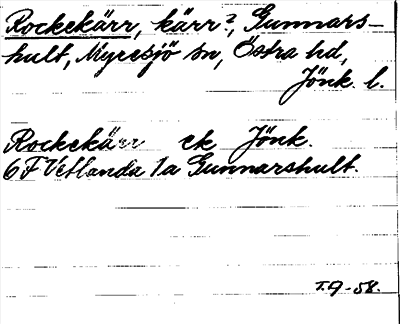 Rockekärr, kärr?, Gunnars-
hult, Myresjö sn, Östra hd,
Jönk. l.
Rockekärr ek Jönk.
6F Vetlanda 1a Gunnarshult.
T.G-58.